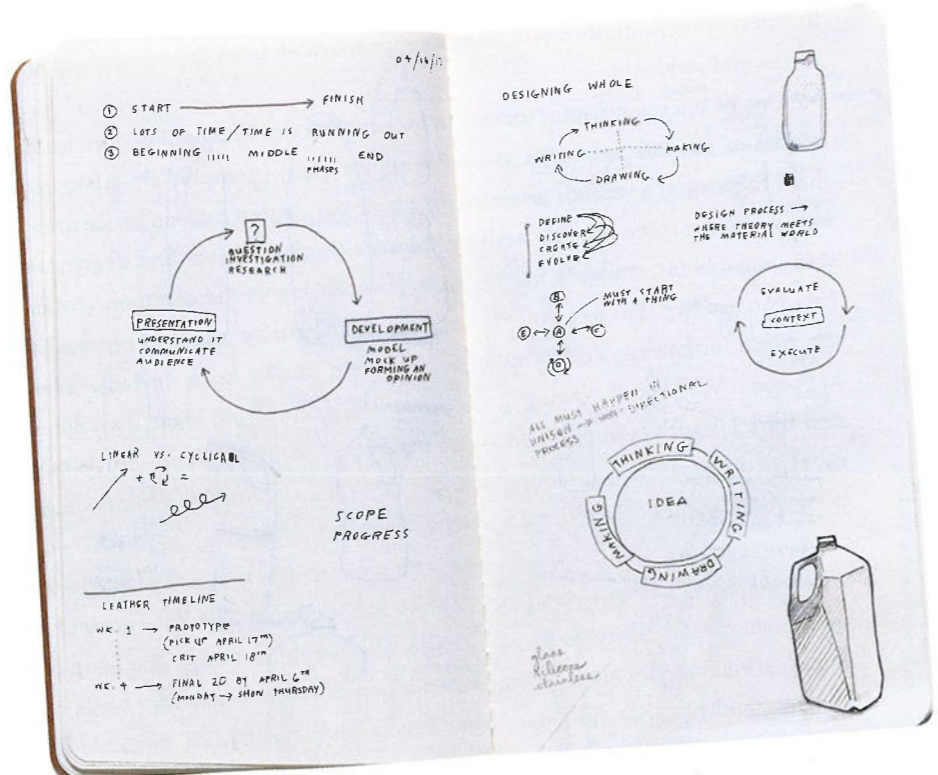 04/16/1
① START → FINISH
② LOTS OF TIME / TIME IS RUNNING OUT
③ BEGINNING ııııı MIDDLE ıııııı END
PHASES
?
QUESTION
INVESTIGATION
RESEARCH
PRESENTATION
UNDERSTAND IT
COMMUNICATE
AUDIENCE
DEVELOPMENT
MODEL
MOCK UP
FORMING AN
OPINION
LINEAR VS. CYCLICAL
+ =
SCOPE
PROGRESS
LEATHER TIMELINE
WK. 1 → PROTOTYPE
(PICK UP APRIL 17TH)
CRIT APRIL 18TH
WK. 4 → FINAL 20 BY APRIL 6TH
(MONDAY → SHOW THURSDAY)
DESIGNING WHOLE
THINKING
WRITING MAKING
DRAWING
DEFINE
DISCOVER
CREATE
EVOLVE
DESIGN PROCESS →
WHERE THEORY MEETS
THE MATERIAL WORLD
MUST START
WITH A THING
B
E ↔ A ↔ C
D
EVALUATE
CONTEXT
EXECUTE
ALL MUST HAPPEN IN
UNISON → NON-DIRECTIONAL
PROCESS
THINKING
WRITING
IDEA
MAKING
DRAWING
glass
silicone
stainless